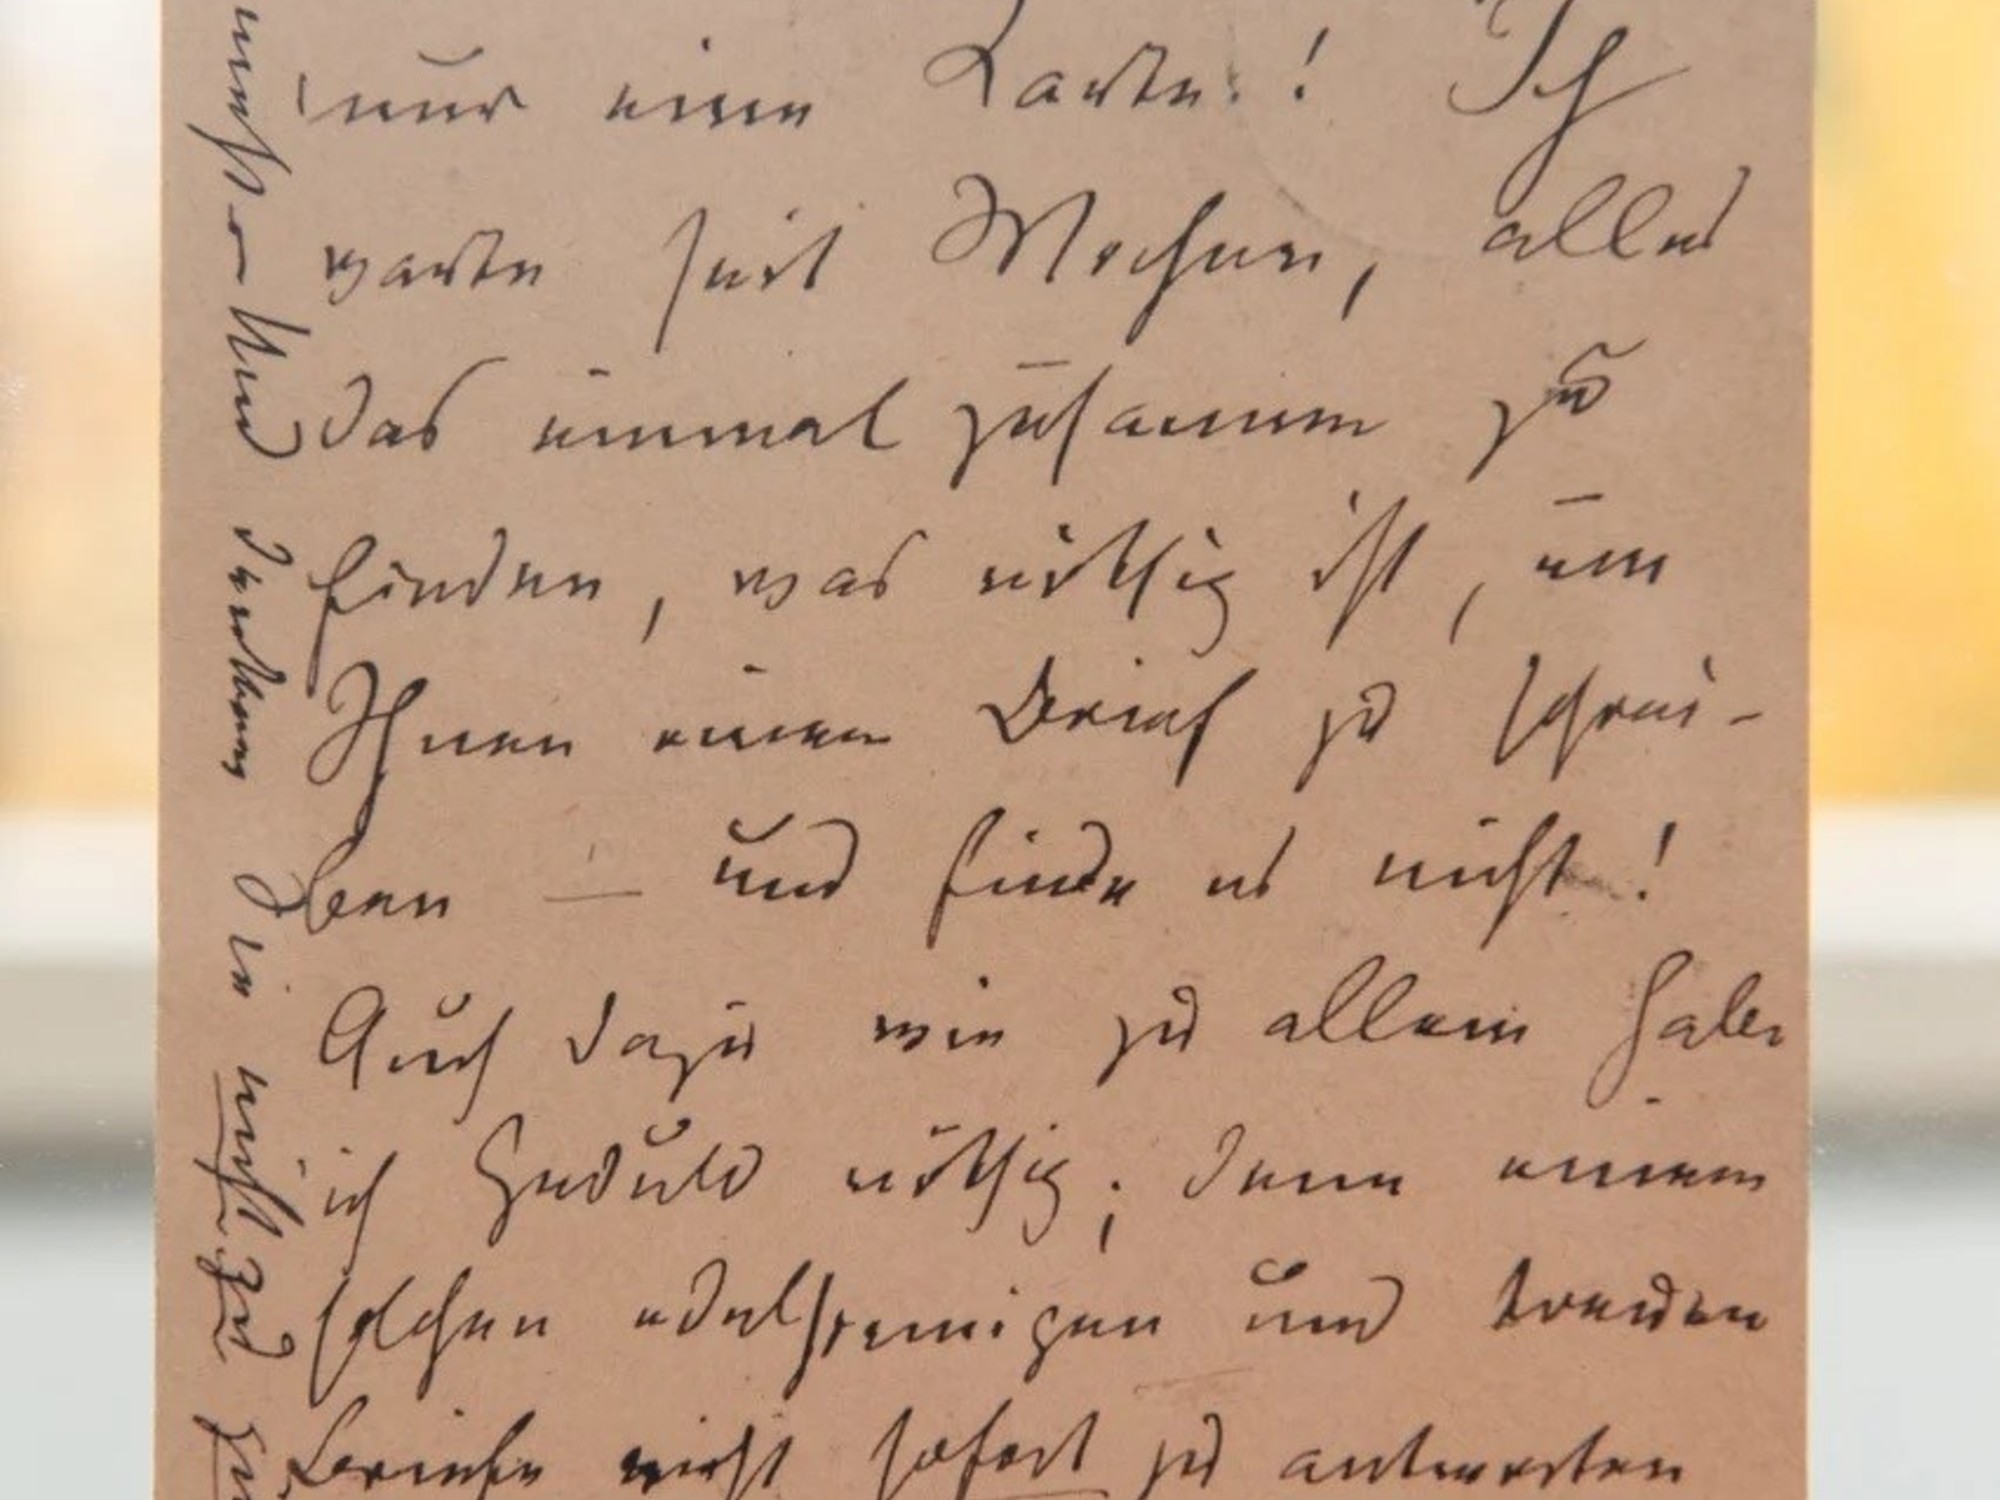 nur eine Karte! Ich
warte seit Wochen, alles
das einmal zusammen zu
finden, was nöthig ist, um
Ihnen einen Brief zu schrei-
ben — und finde es nicht!
Auch dazu wie zu allem habe
ich Geduld nöthig; denn einem
solchen edelsinnigen und treuen
Briefe nicht sofort zu antworten
Und in nicht zu